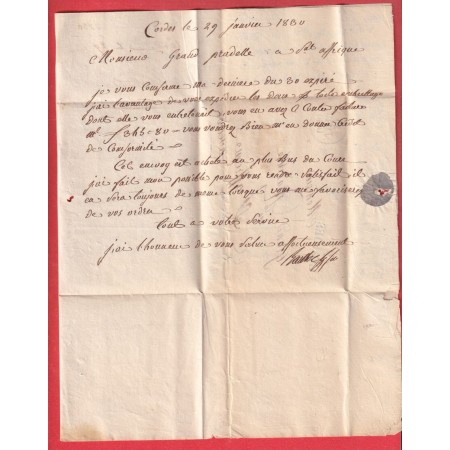 Cordes le 29 janvier 1830
Monsieur Grand pradelle a St affrique
je vous Confirme ma derniere du 30 expiré
jai lavantage de vous expédier les deux Bs toile emballage
dont elle vous entretenait, vous en avez Ci Contre facture
mt f 366=80 — vous voudrez bien m'en donner credit
de Conformité
Cet envoy est calculé au plus bas du Cours
jai fait mon possible pour vous rendre Satisfait, il
en Sera toujours de meme lorsque vous me favoriserez
de vos ordres
Tout a votre Service
jai lhonneur de vous Saluer affectueusement